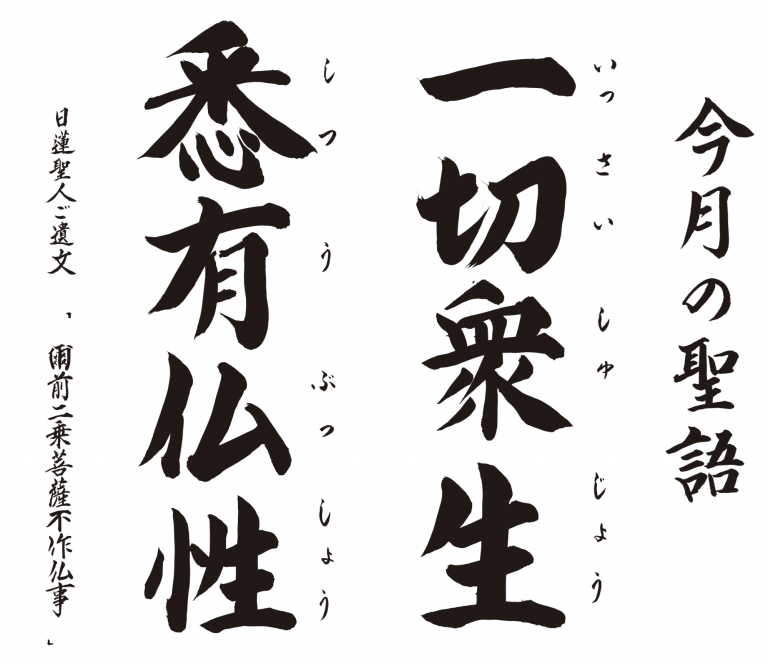 今月の聖語
いっさいしゅじょう
一切衆生
しつうぶっしょう
悉有仏性
日蓮聖人ご遺文「爾前二乗菩薩不作仏事」